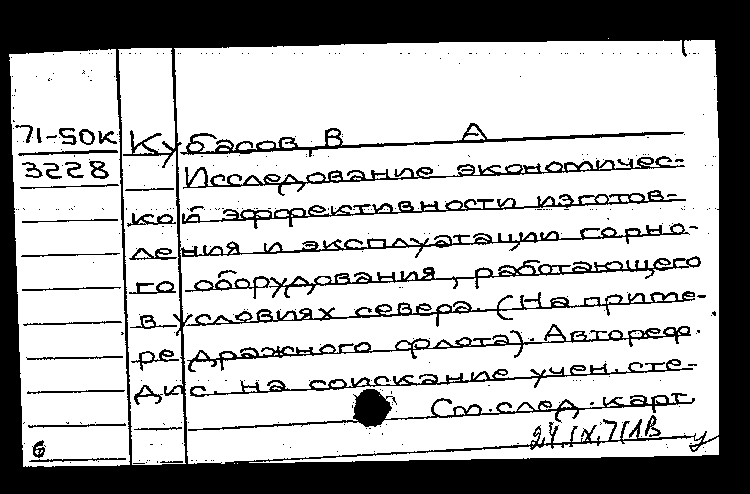 71-50к Кубасов, В А
3228 Исследование экономичес-
кой эффективности изготов-
ления и эксплуатации горно-
го оборудования, работающего
в условиях севера. (На приме-
ре дражного флота). Автореф.
дис. на соискание учен. сте-
См. след. карт.
24.IX.71 ЛВ
6